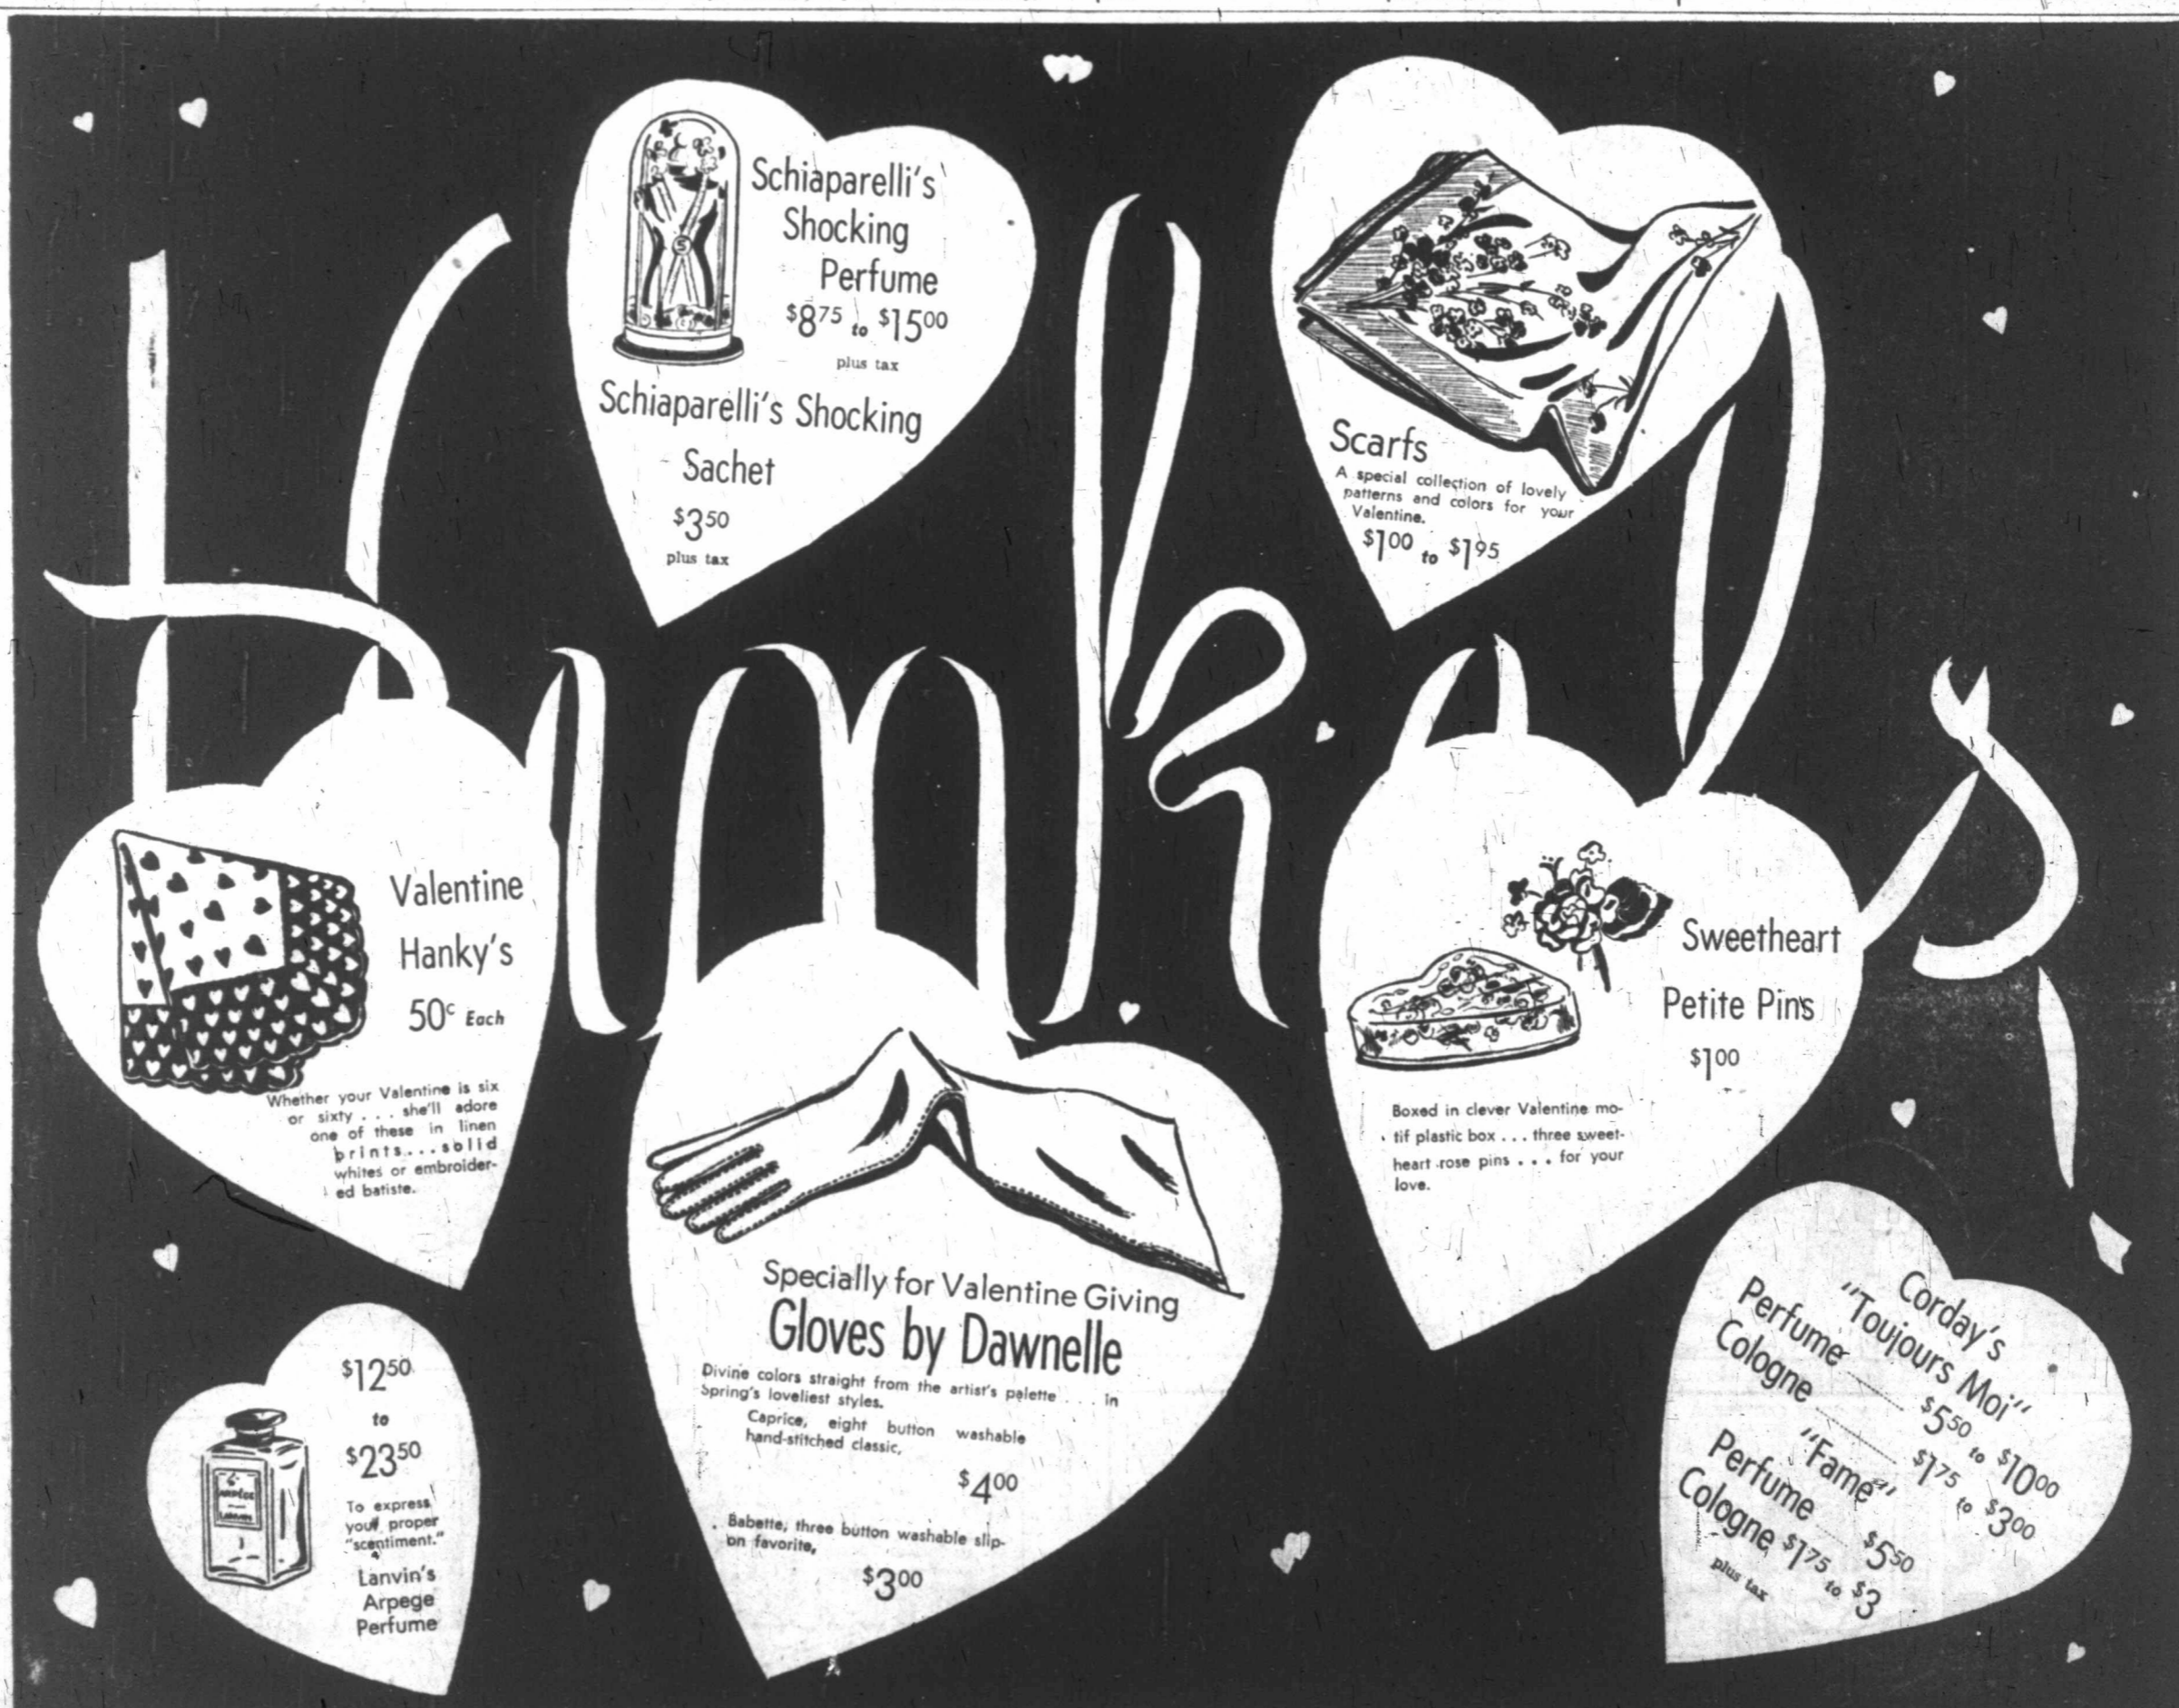 Schiaparelli's
Shocking
Perfume
$8.75 to $15.00
plus tax
Schiaparelli's Shocking
Sachet
$3.50
plus tax
Scarfs
A special collection of lovely
patterns and colors for your
Valentine.
$1.00 to $1.95
Valentine
Hanky's
50c Each
Whether your Valentine is six
or sixty . . . she'll adore
one of these in linen
prints . . . solid
whites or embroider-
ed batiste.
Sweetheart
Petite Pins
$1.00
Boxed in clever Valentine mo-
tif plastic box . . . three sweet-
heart rose pins . . . for your
love.
Specially for Valentine Giving
Gloves by Dawnelle
Divine colors straight from the artist's palette . . . in
Spring's loveliest styles.
Caprice, eight button washable
hand-stitched classic,
$4.00
Babette, three button washable slip-
on favorite,
$3.00
$12.50
to
$23.50
ARPÈGE
LANVIN
To express
your proper
"scentiment."
Lanvin's
Arpege
Perfume
Corday's
"Toujours Moi"
Perfume $5.50 to $10.00
Cologne $1.75 to $3.00
"Fame"
Perfume $5.50
Cologne $1.75 to $3
plus tax